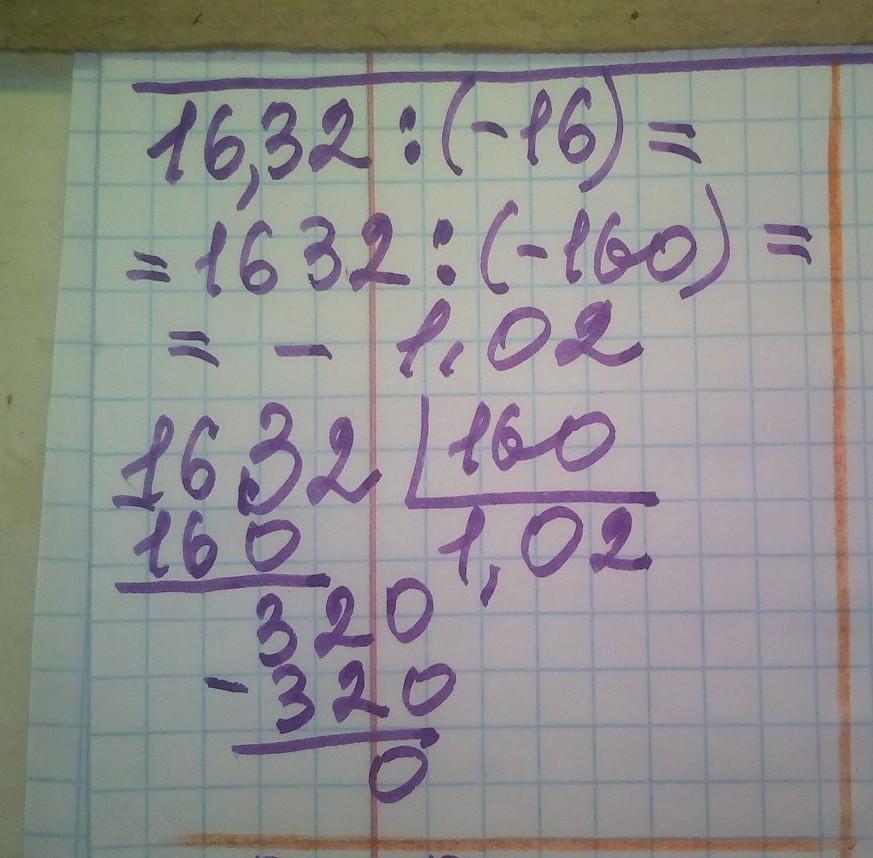 16,32 : (-16) =
= 1632 : (-160) =
= - 1,02
1632 160
160 1,02
320
- 320
0